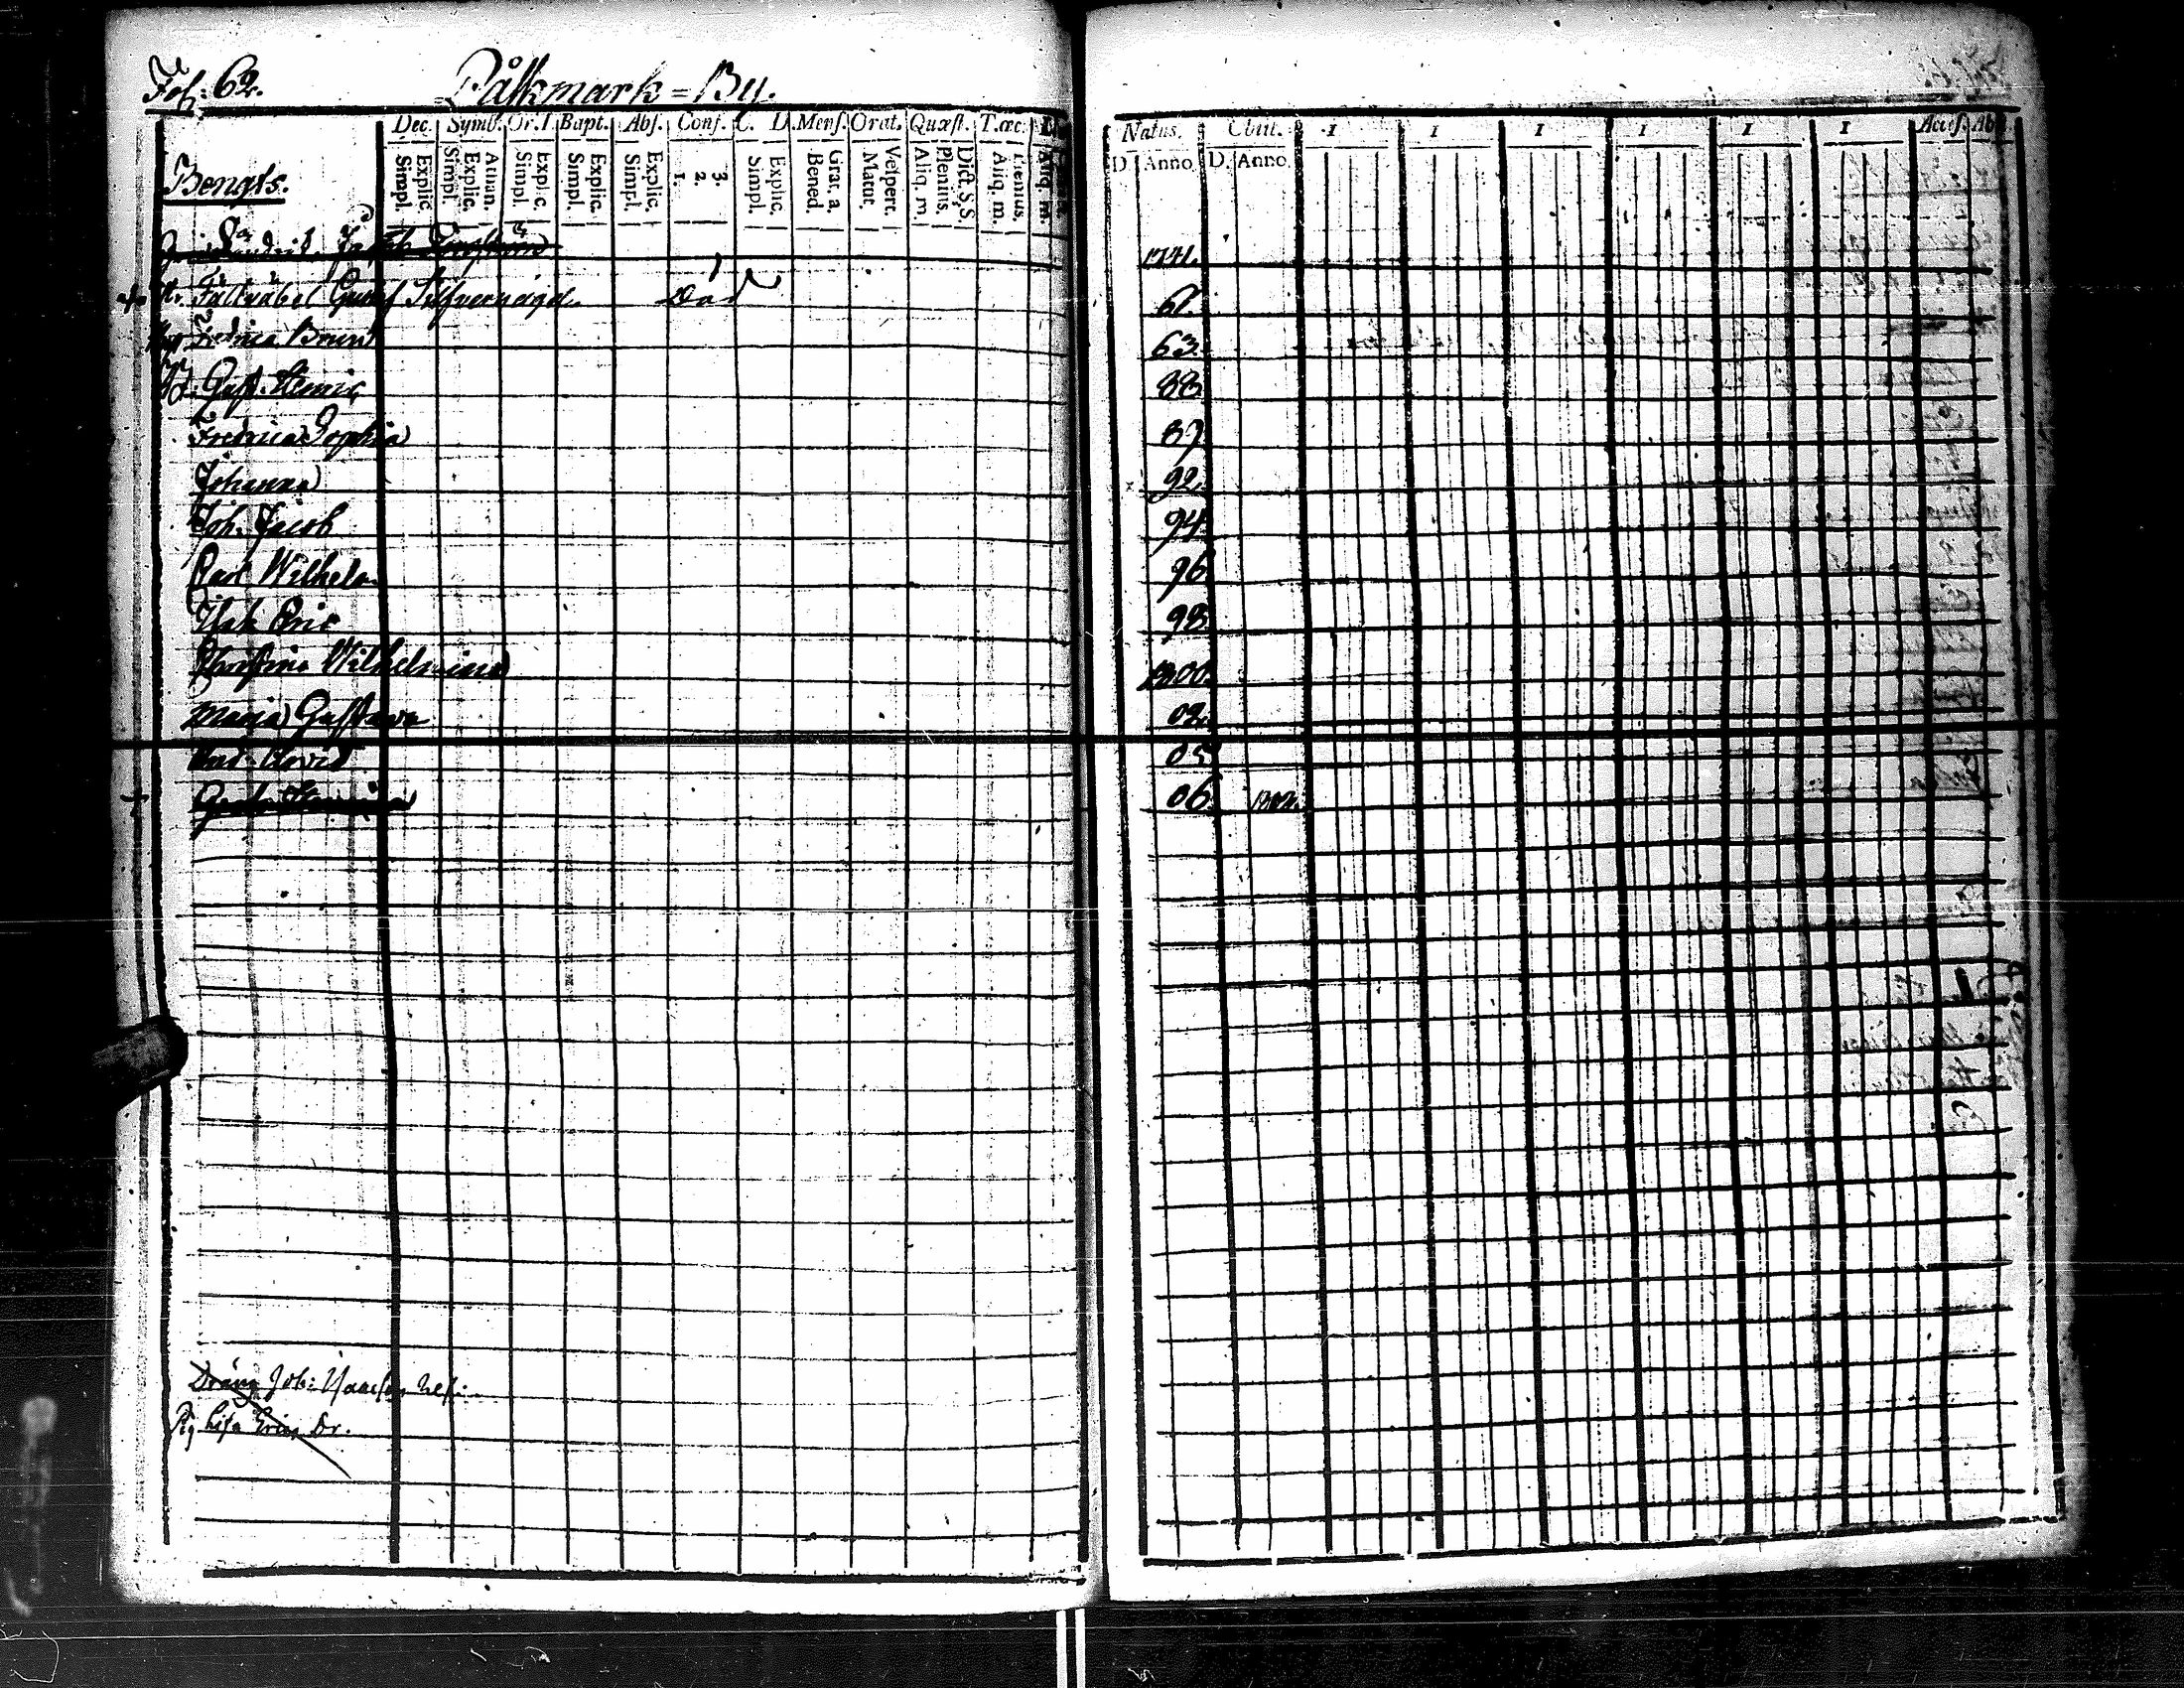 Fol: 62.
Pålkmark=By.
Dec. Symb. Or. I Bapt. Abs. Conf. C. D. Mens. Orat. Quæst. T. œc.
Natus. Obiit. I I I I I I Accus. Ab
Explic. Simpl. Athan. Explic. Simpl. Explic. Simpl Explic. Simpl. Explic. Simpl. 3. 2. 1. Explic. Simpl. Grat. a. Bened. Vespert. Matut. Dict. S,S. Plenius, Aliq. m. Plenius, Aliq. m. Aliq. m.
D. Anno. D. Anno.
Bengts.
1741.
Fältväbel Gustaf Silfvernagel. Död 61.
Hu. Fredrica Brun 63.
Gust. 88.
Fredrica Sophia 89
Johanna 92.
Joh. Jacob 94.
Carl Wilhelm 96
Isak Eric 98.
Christina Wilhelmina 1800.
Maria Gustava 02.
And. David 05
06.
Dräng Joh: Isacsson
Pig Lisa Erics Dr.